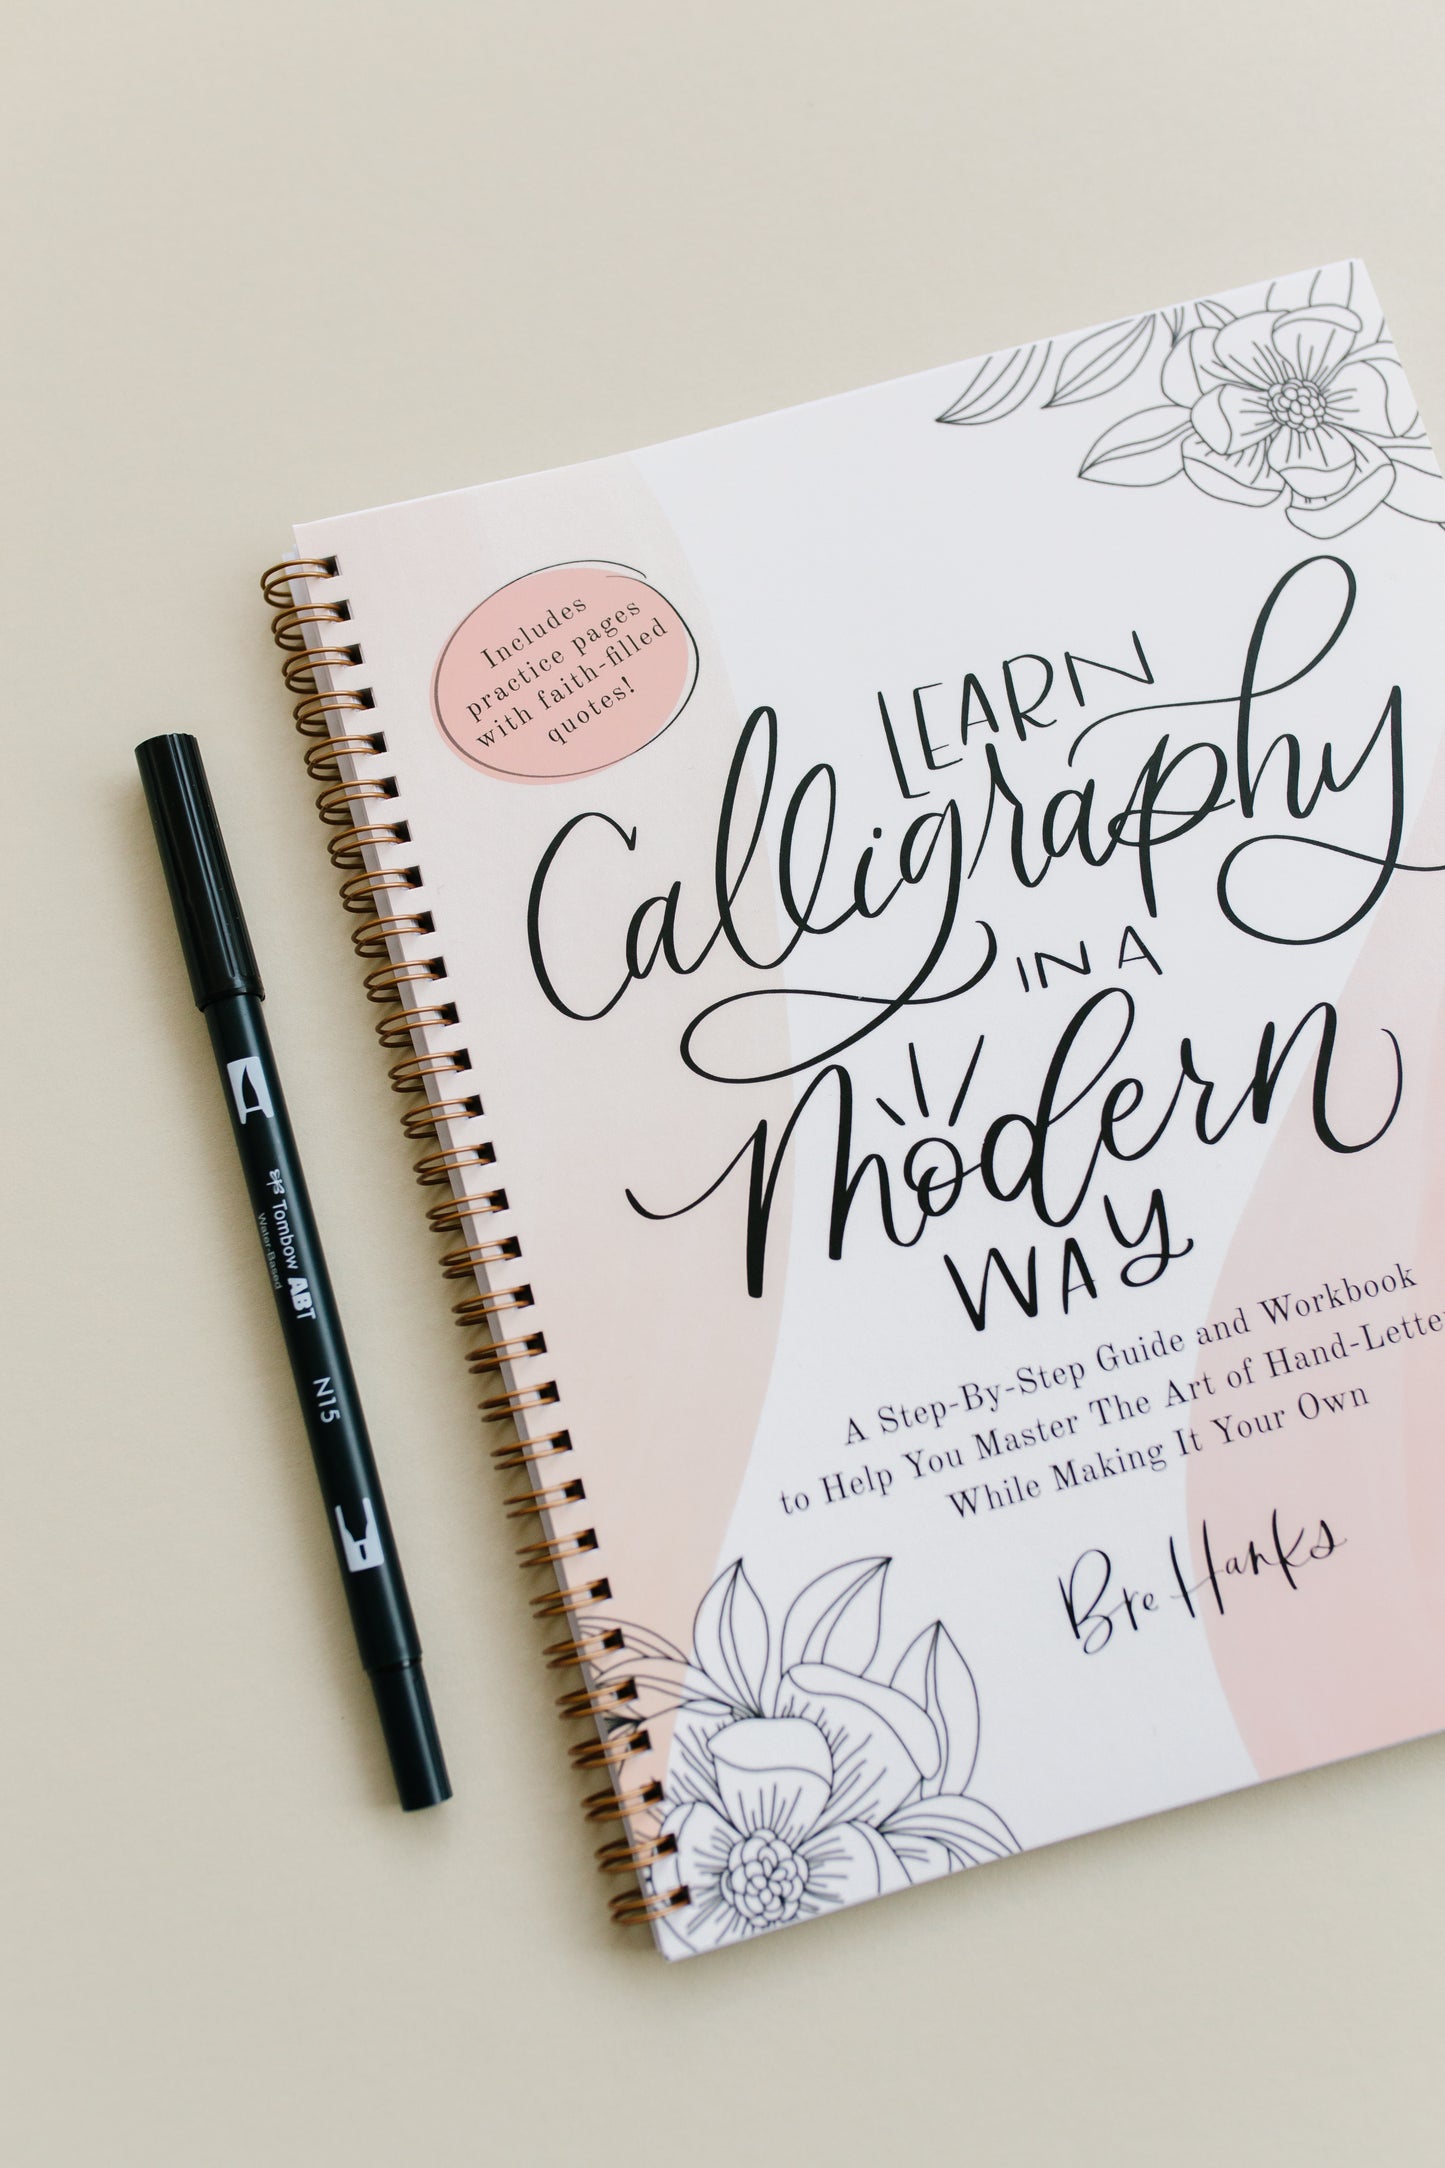 Includes
practice pages
with faith-filled
quotes!
LEARN
Calligraphy
IN A
Modern
WAY
A Step-By-Step Guide and Workbook
to Help You Master The Art of Hand-Lette
While Making It Your Own
Bre Hanks
Tombow ABT
Water-Based
N15